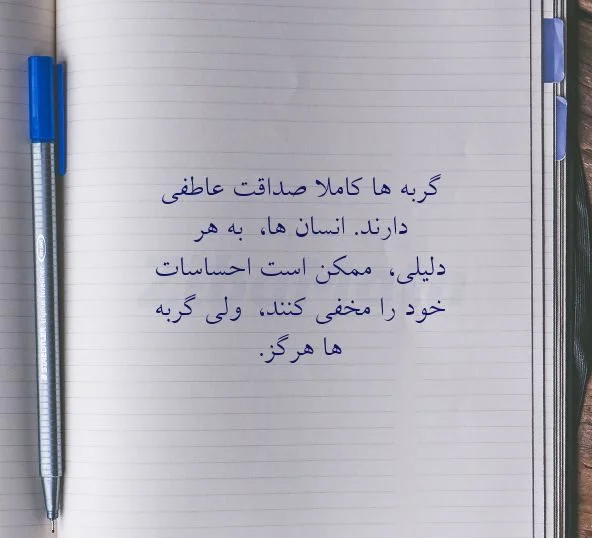 گربه ها کاملا صداقت عاطفی
دارند. انسان ها،  به هر
دلیلی،  ممکن است احساسات
خود را مخفی کنند،  ولی گربه
ها هرگز.